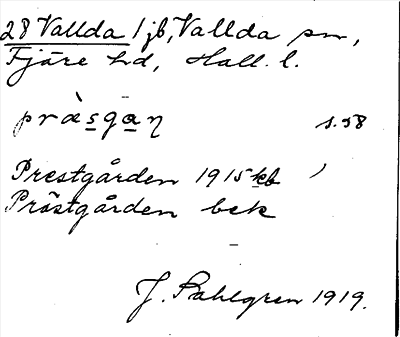 28 Vallda 1 jb, Vallda sn,
Fjäre hd, Hall. l.
pràsgan s. 58
Prestgården 1915 kb
Pröstgården bek
J. Sahlgren 1919.